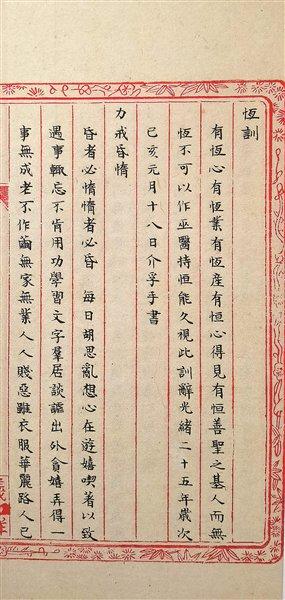 恆訓
有恆心有恆業有恆產有恆心得見有恆善聖之基人而無
恆不可以作巫醫持恆能久視此訓辭光緒二十五年歲次
己亥元月十八日介孚手書
力戒昏惰
昏者必惰惰者必昏 每日胡思亂想心在遊嬉喫著以致
遇事輒忘不肯用功學習文字羣居談謳出外貪嬉弄得一
事無成老不作繭無家無業人人賤惡雖衣服華麗路人已